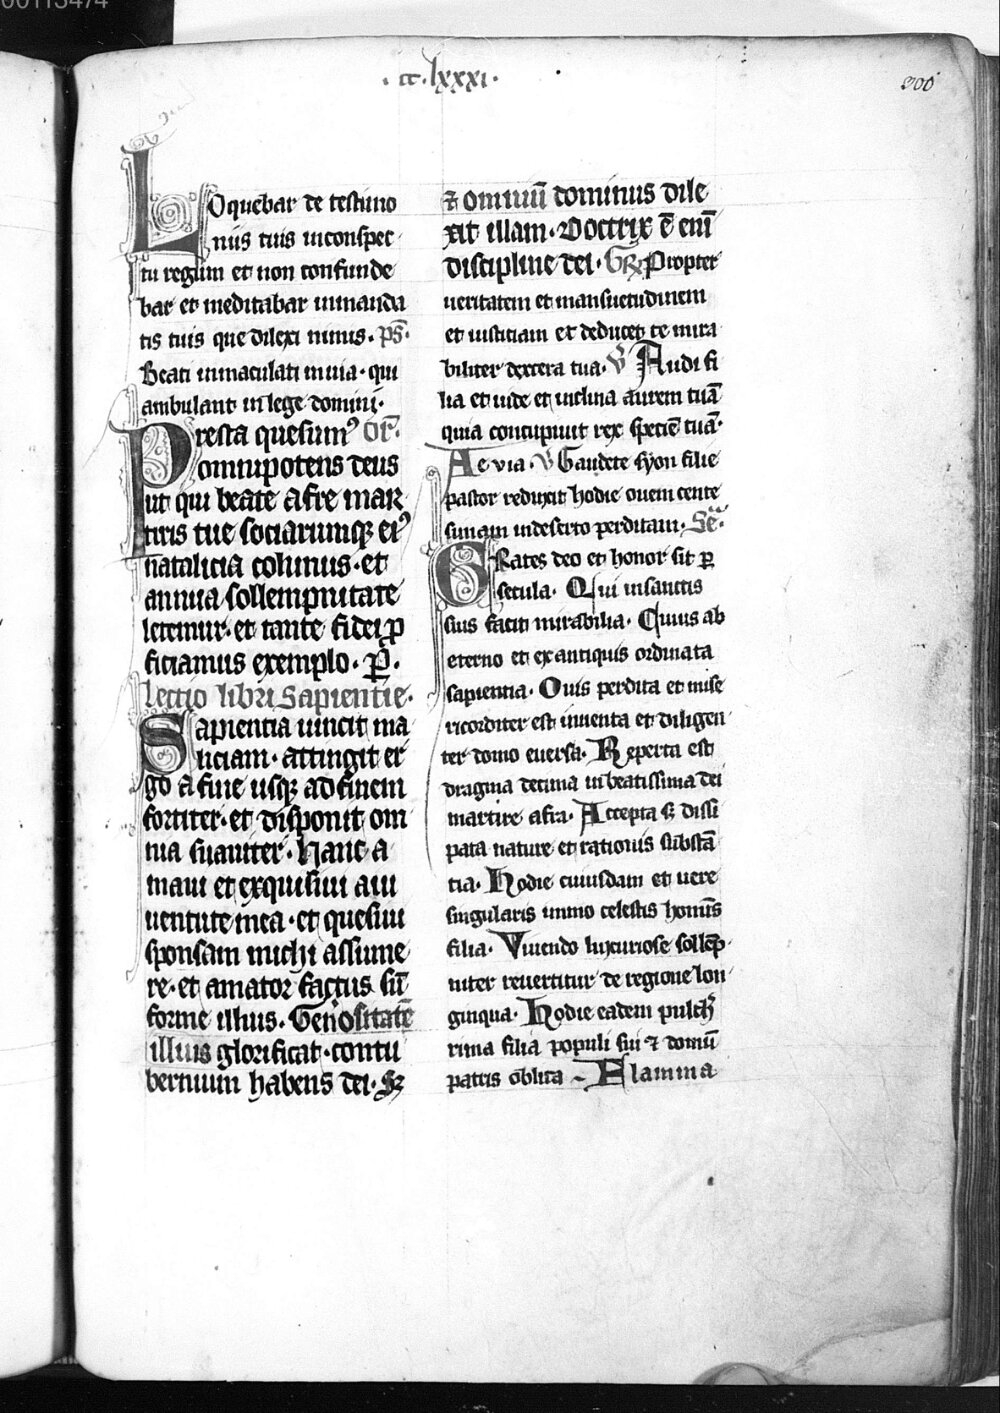 00113474
·cc·lxxxi·
300
LOquebar de testimo
niis tuis inconspec
tu regum et non confunde
bar et meditabar inmanda
tis tuis que dilexi nimis· p̄s·
Beati inmaculati inuia· qui
ambulant in lege domini·
Presta quesumꝰ or̄·
omnipotens deus
ut qui beate afre mar
tiris tue sociarumqꝫ eiꝰ
natalicia colimus· et
annua sollempnitate
letemur· et tante fidei ꝓ
ficiamus exemplo· P̄·
Lectio libri Sapientie·
Sapientia uincit ma
liciam· attingit er
go a fine usqꝫ ad finem
fortiter· et disponit om
nia suauiter· Hanc a
maui et exquisiui a iu
uentute mea· et quesiui
sponsam michi assume
re· et amator factus sū
forme illius· Generositatē
illius glorificat· contu
bernium habens dei· Sꝫ
⁊ omniū dominus dile
xit illam· Doctrix ē enī
discipline dei· Gr̄ Propter
ueritatem et mansuetudinem
et iusticiam et deducet te mira
biliter dextera tua· V Audi fi
lia et uide et inclina aurem tuā
quia concupiuit rex speciē tuā·
Aeuia· V Gaudete syon filie
pastor reduxit hodie ouem cente
simam indeserto perditam· Sē·
GRates deo et honor sit ꝑ
secula· Qui insanctis
suis facit mirabilia· Cuius ab
eterno et ex antiquis ordinata
sapientia· Ouis perdita et mise
ricorditer est inuenta et diligen
ter domo euersa· Reperta est
dragma decima in beatissima dei
martire afra· Accepta ꝫ dissi
pata nature et rationis substā
tia· Hodie cuiusdam et uere
singularis immo celestis hominis
filia· Viuendo luxuriose sollēp
niter reuertitur de regione lon
ginqua· Hodie eadem pulcher
rima filia populi sui ⁊ domū
patris oblita – Flamma